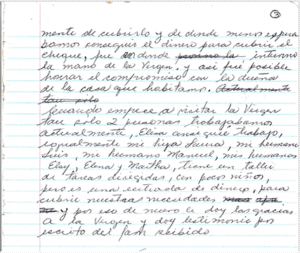 3
mente de cubrirlo y de donde menos espera
bamos conseguir el dinero para cubrir el
cheque, fue donde intervino
la mano de la Virgen. y así fué posible
honrar el compromiso con la dueña
de la casa que habitamos. Actualmente
tan solo
Cuando empecé a visitar la Virgen
tan solo 2 personas trabajabamos
actualmente, Elisa consiguió trabajo,
igualmente mi hija Laura, mi hermano
Luis, mi hermano Manuel, mis hermanas
Elsy, Elena y Martha, tiene un taller
de tareas dirigidas, con pocos niños,
pero es una entrada de dinero, para
cubrir nuestras necesidades
y por eso de nuevo le doy las gracias
a la Virgen y doy testimonio por
escrito del favor recibido